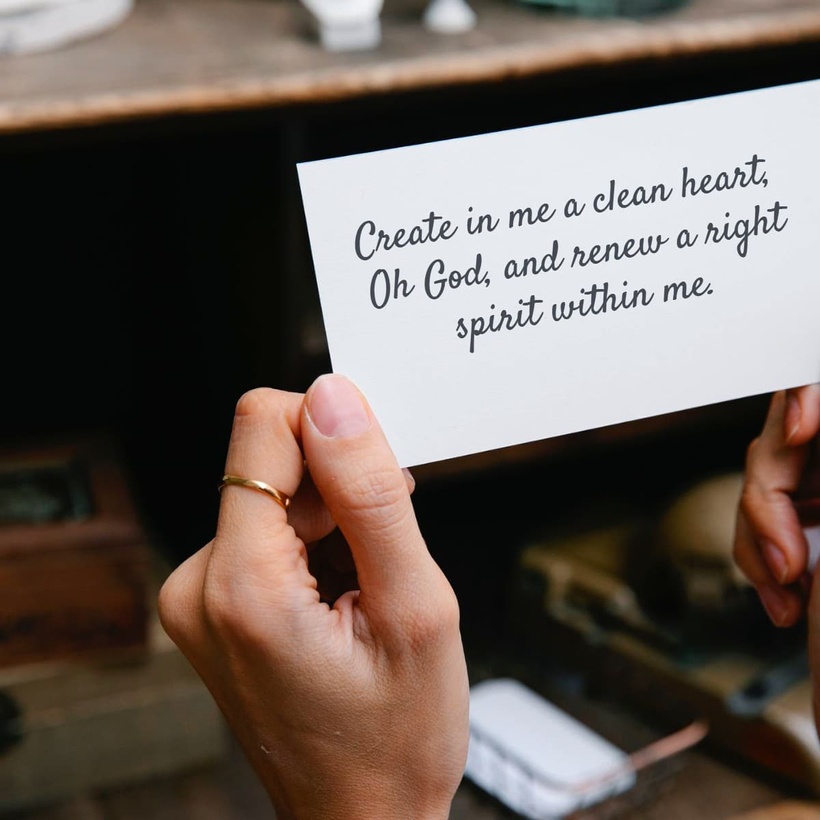 Create in me a clean heart,
Oh God, and renew a right
spirit within me.